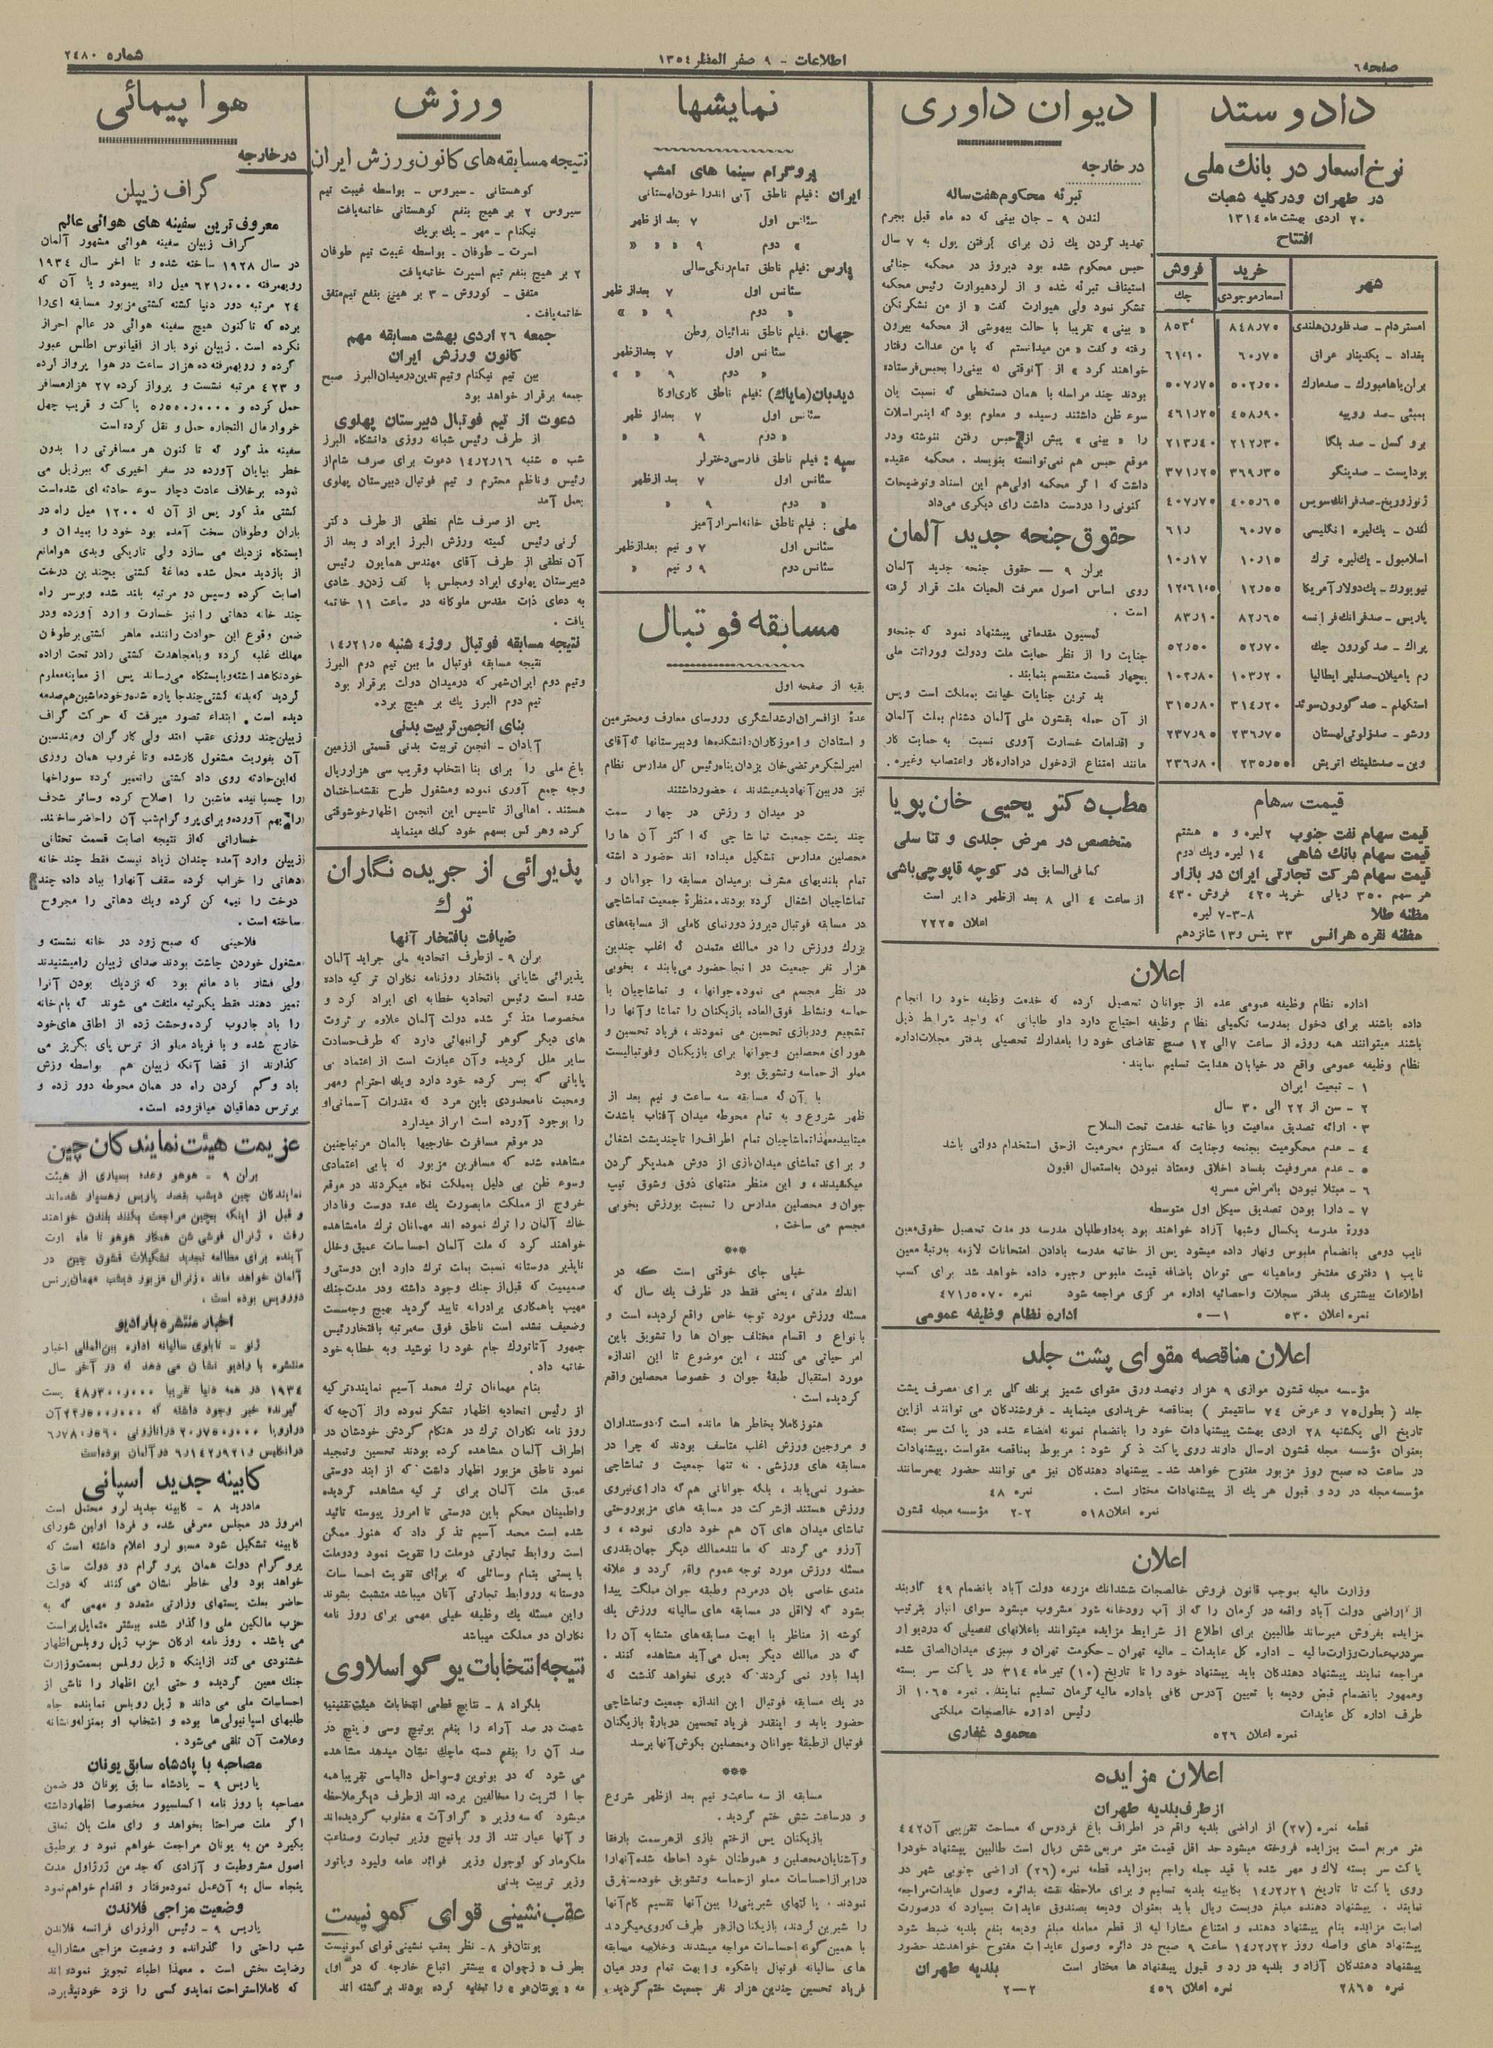 صفحه ٦
اطلاعات - ٩ صفر المظفر ١٣٥٤
شماره ٢٤٨٠
داد و ستد
نرخ اسعار در بانك ملی
در طهران ودر کلیه شعبات
٢٠ اردی بهشت ماه ١٣١٤
افتتاح
شهر خرید فروش
اسعار موجودی چك
امستردام - صد فلورن هلندی ٨٤٨٫٧٥
بغداد - یکدینار عراق ٦٠٫٧٥ ٦١٫١٠
برلن یا هامبورك - صدمارك ٥٠٢٫٥٠ ٥٠٧٫٧٥
بمبئی - صد روپیه ٤٥٨٫٩٠ ٤٦١٫٢٥
بروکسل - صد بلگا ٢١٢٫٣٠ ٢١٣٫٤٠
بوداپست - صد پنگو ٣٦٩٫٣٥ ٣٧١٫٢٥
ژنو زوریخ - صد فرانك سویس ٤٠٥٫٦٥ ٤٠٧٫٧٥
لندن - یك لیره انگلیسی ٦٠٫٧٥ ٦١٫
اسلامبول - یك لیره ترك ١٠٫١٥ ١٠٫١٧
نیویورك - یك دولار آمریکا ١٢٫٥٥
پاریس - صد فرانك فرانسه ٨٢٫٦٥ ٨٣٫١٠
پراك - صد کورون چك ٥٢٫٧٠ ٥٢٫٥٠
رم یا میلان - صد لیر ایطالیا ١٠٣٫٢٠ ١٠٢٫٨٠
استکهلم - صد کورون سوئد ٣١٤٫٢٠ ٣١٥٫٨٠
ورشو - صد زلوتی لهستان ٢٣٦٫٧٥ ٢٣٧٫٩٥
وین - صد شلینك اتریش ٢٣٥٫٥٥ ٢٣٦٫٨٠
قیمت سهام
قیمت سهام نفت جنوب ٢ لیره و ٥ هشتم
قیمت سهام بانك شاهی ١٤ لیره ویك دوم
قیمت سهام شرکت تجارتی ایران در بازار
هر سهم ٣٥٠ ریالی خرید ٤٢٥ فروش ٤٣٠
مظنه طلا ٨-٣-٧ لیره
مظنه نقره هر انس ٣٣ پنس و ١٣ شانزدهم
دیوان داوری
در خارجه
تبرئه محکوم هفت ساله
لندن ٩ - جان بینی که ده ماه قبل بجرم
تهدید کردن یك زن برای گرفتن پول به ٧ سال
حبس محکوم شده بود دیروز در محکمه جنائی
استیناف تبرئه شده و از لرد هیوارت رئیس محکمه
تشکر نمود ولی هیوارت گفت « از من تشکر نکن
« بینی » تقریبا با حالت بیهوشی از محکمه بیرون
رفته و گفت « من میدانستم که با من عدالت رفتار
خواهند کرد » از آنوقتی که بینی را بحبس فرستاده
بودند چند مراسله با همان دستخطی که نسبت بان
سوء ظن داشتند رسیده و معلوم بود که اینمراسلات
را « بینی » پیش از حبس رفتن ننوشته ودر
موقع حبس هم نمی‌توانسته بنویسد . محکمه عقیده
داشت که اگر محکمه اولی هم این اسناد وتوضیحات
کنونی را در دست داشت رای دیگری می‌داد
حقوق جنحه جدید آلمان
برلن ٩ — حقوق جنحه جدید آلمان
روی اساس اصول معرفت الحیات ملت قرار گرفته
است .
کمسیون مقدماتی پیشنهاد نمود که جنحه و
جنایت را از نظر حمایت ملت ودولت ووراثت ملی
بچهار قسمت منقسم بنمایند.
بد ترین جنایات خیانت بمملکت است وپس
از آن حمله بقشون ملی آلمان دشنام بملت آلمان
و اقدامات خسارت آوری نسبت به حمایت کار
مانند امتناع از دخول در اداره کار واعتصاب وغیره .
مطب دکتر یحیی خان پویا
متخصص در مرض جلدی و تناسلی
کما فی السابق در کوچه قاپوچی باشی
از ساعت ٤ الی ٨ بعد از ظهر دایر است
اعلان ٢٢٢٥
اعلان
اداره نظام وظیفه عمومی عده از جوانان تحصیل کرده که خدمت وظیفه خود را انجام
داده باشند برای دخول بمدرسه تکمیلی نظام وظیفه احتیاج دارد داو طلبانی که واجد شرایط ذیل
باشند میتوانند همه روزه از ساعت ٧ الی ١٢ صبح تقاضای خود را بامدارك تحصیلی بدفتر مجلات اداره
نظام وظیفه عمومی واقع در خیابان هدایت تسلیم نمایند:
١ - تبعیت ایران
٢ - سن از ٢٢ الی ٣٠ سال
٣ - ارائه تصدیق معافیت ویا خاتمه خدمت تحت السلاح
٤ - عدم محکومیت بجنحه وجنایت که مستلزم محرمیت از حق استخدام دولتی باشد
٥ - عدم معروفیت بفساد اخلاق ومعتاد نبودن به‌استعمال افیون
٦ - مبتلا نبودن بامراض مسریه
٧ - دارا بودن تصدیق سیکل اول متوسطه
دوره مدرسه یکسال وشبها آزاد خواهند بود به‌داوطلبان مدرسه در مدت تحصیل حقوق معین
نایب دومی بانضمام ملبوس ونهار داده میشود پس از خاتمه مدرسه بادادن امتحانات لازمه به‌رتبهٔ معین
نایب ١ دفتری مفتخر وماهیانه سی تومان باضافه قیمت ملبوس وجیره داده خواهد شد برای کسب
اطلاعات بیشتری بدفتر سجلات واحصائیه اداره مرکزی مراجعه شود نمره ٤٧١٫٥٠٧٠
نمره اعلان ٥٣٠ ١—٥ اداره نظام وظیفه عمومی
اعلان مناقصه مقوای پشت جلد
مؤسسه مجله قشون موازی ٩ هزار ونهصد ورق مقوای شمیز برنك گلی برای مصرف پشت
جلد ( بطول ٧٥ و عرض ٧٤ سانتیمتر ) بمناقصه خریداری مینماید - فروشندگان می توانند ازاین
تاریخ الی یکشنبه ٢٨ اردی بهشت پیشنهادات خود را بانضمام نمونه امضاء شده در پاکت سر بسته
بعنوان مؤسسه مجله قشون ارسال دارند روی پاکت ذکر شود : مربوط بمناقصه مقواست. پیشنهادات
در ساعت ده صبح روز مزبور مفتوح خواهد شد. پیشنهاد دهندگان نیز می توانند حضور بهمرسانند
مؤسسه مجله در رد و قبول هر یك از پیشنهادات مختار است . نمره ٤٨
نمره اعلان ٥١٨ ٢-٢ مؤسسه مجله قشون
اعلان
وزارت مالیه بموجب قانون فروش خالصجات ششدانك مزرعه دولت آباد بانضمام ٤٩ گاوبند
از اراضی دولت آباد واقعه در کرمان را که از آب رودخانه شور مشروب میشود سوای انبار بترتیب
مزایده بفروش میرساند طالبین برای اطلاع از شرایط مزایده میتوانند باعلانهای تفصیلی که دردیوار
سردرب عمارت وزارت مالیه - اداره کل عایدات - مالیه تهران - حکومت تهران و سبزی میدان الصاق شده
مراجعه نمایند پیشنهاد دهندگان باید پیشنهاد خود را تا تاریخ (١٠) تیرماه ٣١٤ در پاکت سر بسته
وممهور بانضمام قبض ودیعه با تعیین آدرس کافی باداره مالیه کرمان تسلیم نمایند. نمره ١٠٦٥ از
طرف اداره کل عایدات رئیس اداره خالصجات مملکتی
نمره اعلان ٥٢٦ محمود غفاری
اعلان مزایده
از طرف بلدیه طهران
قطعه نمره (٢٧) از اراضی بلدیه واقع در اطراف باغ فردوس که مساحت تقریبی آن ٤٤٢
متر مربع است بمزایده فروخته میشود حد اقل قیمت متر مربعی شش ریال است طالبین پیشنهاد خودرا
پاکت سر بسته لاك و مهر شده با قید جمله راجع بمزایده قطعه نمره (٢٦) اراضی جنوبی شهر در
روی پاکت تا تاریخ ١٤٫٢٫٢١ بکابینه بلدیه تسلیم و برای ملاحظه نقشه بدائره وصول عایدات مراجعه
نمایند . پیشنهاد دهنده مبلغ دویست ریال باید بعنوان ودیعه بصندوق عایدات بسپارد که درصورت
اصابت مزایده بنام پیشنهاد دهنده و امتناع مشارالیه از قطع معامله مبلغ ودیعه بنفع بلدیه ضبط شود
پیشنهاد های واصله روز ١٤٫٢٫٢٢ ساعت ٩ صبح در دائره وصول عایدات مفتوح خواهد شد حضور
پیشنهاد دهندگان آزاد و بلدیه در رد و قبول پیشنهاد ها مختار است بلدیه طهران
نمره ٢٨٦٥ نمره اعلان ٤٥٦ ٢—٢
نمایشها
پروگرام سینما های امشب
ایران : فیلم ناطق آنی اندرا خون لهستانی
سئانس اول ٧ بعد از ظهر
» دوم ٩ » » »
پارس : فیلم ناطق تمام رنگی سالی
سئانس اول ٧ بعد از ظهر
» دوم ٩ » »
جهان : فیلم ناطق ندائیان وطن
سئانس اول ٧ بعد از ظهر
» دوم ٩ » »
دیدبان (مایاك) : فیلم ناطق کاری اوکا
سئانس اول ٧ بعد از ظهر
» دوم ٩ » »
سپه : فیلم ناطق فارسی دختر لر
سئانس اول ٧ بعد از ظهر
» دوم ٩ »
ملی : فیلم ناطق خانه اسرار آمیز
سئانس اول ٧ و نیم بعد از ظهر
سئانس دوم ٩ و نیم »
مسابقه فوتبال
بقیه از صفحه اول
عدهٔ از افسران ارشد لشگری وروسای معارف ومحترمین
و استادان و اموزگاران دانشکده‌ها ودبیرستانها که آقای
امیر لشکر مرتضی خان یزدان پناه رئیس کل مدارس نظام
نیز در بین آنها دیده میشدند ، حضور داشتند
در میدان و رزش در چهار سمت
چند پشت جمعیت تماشاچی که اکثر آن ها را
محصلین مدارس تشکیل میداده اند حضور داشته
تمام بلندیهای مشرف بر میدان مسابقه را جوانان و
تماشاچیان اشغال کرده بودند. منظرهٔ جمعیت تماشاچی
در مسابقه فوتبال دیروز دورنمای کاملی از مسابقه‌های
بزرك ورزش را در ممالك متمدن که اغلب چندین
هزار نفر جمعیت در انجا حضور می‌یابند ، بخوبی
در نظر مجسم می نمود جوانها ، و تماشاچیان با
حماسه ونشاط فوق العاده بازیکنان را تماشا وآنها را
تشجیع ودربازی تحسین می نمودند ، فریاد تحسین و
هورای محصلین وجوانها برای بازیکنان وفوتبالیست
مملو از حماسه وتشویق بود
با آن که مسابقه سه ساعت و نیم بعد از
ظهر شروع و به تمام محوطه میدان آفتاب باشدت
میتابید معهذا تماشاچیان تمام اطراف را تا چند پشت اشغال
و برای تماشای میدان بازی از دوش همدیگر گردن
میکشیدند ، و این منظر منتهای ذوق وشوق تیپ
جوان و محصلین مدارس را نسبت بورزش بخوبی
مجسم می ساخت .
***
خیلی جای خوقتی است که در
اندك مدتی ، یعنی فقط در ظرف یك سال که
مسئله ورزش مورد توجه خاص واقع گردیده است و
بانواع و اقسام مختلف جوان ها را تشویق باین
امر حیاتی می کنند ، این موضوع تا این اندازه
مورد استقبال طبقهٔ جوان و خصوصا محصلین واقع
گردیده است .
هنوز کاملا بخاطر ها مانده است که دوستداران
و مروجین ورزش اغلب متاسف بودند که چرا در
مسابقه های ورزشی . نه تنها جمعیت و تماشاچی
حضور نمی‌یابد ، بلکه جوانانی هم که دارای نیروی
ورزش هستند از شرکت در مسابقه های مزبور وحتی
تماشای میدان های آن هم خود داری نموده ، و
آرزو می کردند که مانند ممالك دیگر جهان بقدری
مسئله ورزش مورد توجه عموم واقع گردد و علاقه
مندی خاصی بان درمردم وطبقه جوان مملکت پیدا
بشود که لااقل در مسابقه های سالیانه ورزش یك
گوشه از مناظر با ابهت مسابقه‌های متشابه آن را
که در ممالك دیگر بعمل می‌آید مشاهده کنند .
ابدا باور نمی کردند که دیری نخواهد گذشت که
در یك مسابقه فوتبال این اندازه جمعیت وتماشاچی
حضور یابد و اینقدر فریاد تحسین دربارهٔ بازیکنان
فوتبال از طبقهٔ جوانان ومحصلین بگوش آنها برسد
***
مسابقه از سه ساعت و نیم بعد از ظهر شروع
و در ساعت شش ختم گردید .
بازیکنان پس از ختم بازی از هر سمت بارفقا
و آشنایان محصلین و هموطنان خود احاطه شده آنها را
در برابر از احساسات مملو از حماسه وتشویق خود مستغرق
نمودند . پاکتهای شیرینی را بین آنها تقسیم کام آنها
را شیرین کردند، بازیکنان از هر طرف که روی میکردند
با همین گونه احساسات مواجه میشدند وخلاصه مسابقه
های سالیانه فوتبال باشکوه وابهت تمام ودر میان
فریاد تحسین چندین هزار نفر جمعیت ختم گردید .
ورزش
نتیجه مسابقه‌های کانون ورزش ایران
کوهستانی - سیروس - بواسطه غیبت تیم
سیروس ٢ بر هیچ بنفع کوهستانی خاتمه یافت
نیکنام - مهر - یك بریك
اسرت - طوفان - بواسطه غیبت تیم طوفان
٢ بر هیچ بنفع تیم اسپرت خاتمه یافت
متفق - کوروش - ٣ بر هیچ بنفع تیم متفق
خاتمه یافت .
جمعه ٢٦ اردی بهشت مسابقه مهم
کانون ورزش ایران
بین تیم نیکنام وتیم تدین درمیدان البرز صبح
جمعه برقرار خواهد بود
دعوت از تیم فوتبال دبیرستان پهلوی
از طرف رئیس شبانه روزی دانشگاه البرز
شب ٥ شنبه ١٤٫٢٫١٦ دعوت برای صرف شام از
رئیس وناظم محترم و تیم فوتبال دبیرستان پهلوی
بعمل آمد
پس از صرف شام نطقی از طرف دکتر
گرنی رئیس کمیته ورزش البرز ایراد و بعد از
آن نطقی از طرف آقای مهندس همایون رئیس
دبیرستان پهلوی ایراد ومجلس با کف زدن و شادی
به دعای ذات مقدس ملوکانه در ساعت ١١ خاتمه
یافت .
نتیجه مسابقه فوتبال روز ٤ شنبه ١٤٫٢١٫٥
نتیجه مسابقه فوتبال ما بین تیم دوم البرز
وتیم دوم ایران‌شهر که درمیدان دولت برقرار بود
تیم دوم البرز یك بر هیچ برد.
بنای انجمن تربیت بدنی
آبادان - انجمن تربیت بدنی قسمتی اززمین
باغ ملی را برای بنا انتخاب وقریب سی هزار ریال
وجه جمع آوری نموده ومشغول طرح نقشه ساختمان
هستند . اهالی از تاسیس این انجمن اظهار خوشوقتی
کرده وهر کس بسهم خود کمك مینماید
پذیرائی از جریده نگاران
ترك
ضیافت بافتخار آنها
برلن ٩ - از طرف اتحادیه ملی جراید آلمان
پذیرائی شایانی بافتخار روزنامه نگاران ترکیه داده
شده است رئیس اتحادیه خطابه ای ایراد کرد و
مخصوصا متذکر شده دولت آلمان علاوه بر ثروت
های دیگر گوهر گرانبهائی دارد که طرف حسادت
سایر ملل گردیده وآن عبارت است از اعتماد بی
پایانی که بسر کرده خود دارد ویك احترام ومهر
ومحبت نامحدودی باین مرد که مقدرات آسمانی او
را بوجود آورده است ابراز میدارد
در موقع مسافرت خارجیها بالمان مرتبا چنین
مشاهده شده که مسافرین مزبور که بابی اعتمادی
وسوء ظن بی دلیل بمملکت نگاه میکردند در موقع
خروج از مملکت ما بصورت یك عده دوست وفادار
خاك آلمان را ترك نموده اند مهمانان ترك ما مشاهده
خواهند کرد که ملت آلمان احساسات عمیق وخلل
ناپذیر دوستانه نسبت بملت ترك دارد این دوستی و
صمیمیت که قبل از جنك وجود داشته ودر مدت جنك
مهیب باهمکاری برادرانه تایید گردید بهیچ وجه سست
وضعیف نشده است ناطق فوق سه مرتبه بافتخار رئیس
جمهور آتاتورك جام خود را نوشید وبه خطابه خود
خاتمه داد .
بنام مهمانان ترك محمد آسیم نماینده ترکیه
از رئیس اتحادیه اظهار تشکر نموده واز آن‌چه که
روز نامه نگاران ترك در هنگام گردش خودشان در
اطراف آلمان مشاهده کرده بودند تحسین وتمجید
نمود ناطق مزبور اظهار داشت که از ابتد دوستی
عمیق ملت آلمان برای ترکیه مشاهده گردیده
واطمینان محکم باین دوستی تا امروز پیوسته تائید
شده است محمد آسیم تذکر داد که هنوز ممکن
است روابط تجارتی دوملت را تقویت نمود ودوملت
بایستی بتمام وسائلی که برای تقویت احساسات
دوستانه وروابط تجارتی آنان میباشد متشبث بشوند
واین مسئله یك وظیفه خیلی مهمی برای روز نامه
نگاران دو مملکت میباشد
نتیجه انتخابات یوگو اسلاوی
بلگراد ٨ - نتایج قطعی انتخابات هیئت تقنینیه
شصت در صد آراء را بنفع یوتیچ وسی و پنج در
صد آن را بنفع دسته ماچك نشان میدهد مشاهده
می شود که در بونوین وسواحل دالماسی تقریبا همه
جا اکثریت را مخالفین برده اند از طرف دیگر ملاحظه
میشود که سه وزیر « گراوآت » مغلوب گردیده‌اند
و آنها عبارتند از ور بانیچ وزیر تجارت وصناعت
ملکومارکو کوجول وزیر فوائد عامه ولیود ویاتور
وزیر تربیت بدنی
عقب نشینی قوای کمونیست
یونتان‌فو ٨ - نظر بعقب نشینی قوای کمونیست
بطرف « زچوان » بیشتر اتباع خارجه که در اول
مه « یونتان‌هو » را تخلیه کرده بودند برگشته اند
هوا پیمائی
در خارجه
گراف زپلن
معروف ترین سفینه های هوائی عالم
گراف زپلن سفینه هوائی مشهور آلمان
در سال ١٩٢٨ ساخته شده و تا اخر سال ١٩٣٤
رویهمرفته ٦٢١٫٠٠٠ میل راه پیموده و با آن که
٢٤ مرتبه دور دنیا گشته کشتی مزبور مسابقه ای را
برده که تاکنون هیچ سفینه هوائی در عالم احراز
نکرده است . زپلن نود بار از اقیانوس اطلس عبور
کرده و رویهمرفته ده هزار ساعت در هوا پرواز کرده
و ٤٢٣ مرتبه نشست و پرواز کرده ٢٧ هزار مسافر
حمل کرده و ٥٫٥٠٠٫٠٠٠ پاکت و قریب چهل
خروار مال التجاره حمل و نقل کرده است
سفینه مذکور که تا کنون هر مسافرتی را بدون
خطر بپایان آورده در سفر اخیری که ببرزیل می
نموده برخلاف عادت دچار سوء حادثه ای شده‌است
کشتی مذکور پس از آن که ١٢٠٠ میل راه در
باران وطوفان سخت آمده بود خود را بمیدان و
ایستگاه نزدیك می سازد ولی تاریکی وبدی هوا مانع
از بازدید محل شده دماغهٔ کشتی بچندین درخت
اصابت کرده وسپس دو مرتبه بلند شده وبر سر راه
چند خانه دهاتی را نیز خسارت وارد آورده ودر
ضمن وقوع این حوادث راننده ماهر کشتی بر طوفان
مهلك غلبه کرده وبامجاهدت کشتی را در تحت اراده
خود نگاهداشته وبایستگاه می‌رساند پس از معاینه معلوم
گردید که بدنه کشتی چند جا پاره شده وخود ماشین هم صدمه
دیده است . ابتداء تصور میرفت که حرکت گراف
زپلن چند روزی عقب افتد ولی کارگران ومهندسین
آن بفوریت مشغول کار شده وتا غروب همان روزی
که این حادثه روی داد کشتی را تعمیر کرده سوراخها
را چسبانیده ماشین را اصلاح کرده وسائر شدف
را بهم آورده و برای پروگرام شب آن را حاضر ساختند .
خساراتی که از نتیجه اصابت قسمت تحتانی
زپلن وارد آمده چندان زیاد نیست فقط چند خانه
دهاتی را خراب کرده سقف آنها را بباد داده چند
درخت را نیمه کن کرده ویك دهاتی را مجروح
ساخته است .
فلاحینی که صبح زود در خانه نشسته و
مشغول خوردن چاشت بودند صدای زپلن را میشنیدند
ولی فشار باد مانع بود که نزدیك بودن آنرا
تمیز دهند فقط یکمرتبه ملتفت می شوند که بام خانه
را باد جاروب کرد. وحشت زده از اطاق های خود
خارج شده و با فریاد مملو از ترس پای بگریز می
گذارند از قضا آنکه زپلن هم بواسطه وزش
باد وگم کردن راه در همان محوطه دور زده و
برترس دهاقیان میافزوده است .
عزیمت هیئت نمایندگان چین
برلن ٩ - هوهو وعده بسیاری از هیئت
نمایندگان چین دیشب بقصد پاریس رهسپار شده‌اند
و قبل از اینکه بچین مراجعت بکنند بلندن خواهند
رفت . ژنرال فوشی‌شن همکار هوهو تا ماه اوت
آینده برای مطالعه تجدید تشکیلات قشون چین در
آلمان خواهد ماند . ژنرال مزبور دیشب مهمان پرنس
دورویس بوده است .
اخبار منتشره با رادیو
ژنو - تابلوی سالیانه اداره بین‌المللی اخبار
منتشره با رادیو نشان می دهد که در آخر سال
١٩٣٤ در همه دنیا تقریبا ٤٨٫٣٠٠٫٠٠٠ پست
گیرنده خبر وجود داشته که ٢٢٫٥٠٠٫٠٠٠ آن
کابینه جدید اسپانی
مادرید ٨ - کابینه جدید لرو محتمل است
امروز در مجلس معرفی شده و فردا اولین شورای
کابینه تشکیل شود مسیو لرو اعلام داشته است که
پروگرام دولت همان پروگرام دو دولت سابق
خواهد بود ولی خاطر نشان می کنند که دولت
حاضر بعلت پستهای وزارتی متعدد و مهمی که به
حزب مالکین ملی واگذار شده بیشتر متمایل براست
می باشد . روز نامه ارکان حزب ژیل روبلس اظهار
خشنودی می کند ازاینکه « ژیل روبلس بسمت وزارت
جنك معین گردیده و حتی این اظهار را ناشی از
احساسات ملی می داند « ژیل روبلس نماینده جاه
طلبهای اسپانیولی‌ها بوده و انتخاب او بمنزله ونشانه
وعلامت آن تلقی می‌شود .
مصاحبه با پادشاه سابق یونان
پاریس ٩ - پادشاه سابق یونان در ضمن
مصاحبه با روز نامه اکسلسیور مخصوصا اظهار داشته
اگر ملت صراحتا بخواهد و رای ملت بان تعلق
بگیرد من به یونان مراجعت خواهم نمود و برطبق
اصول مشروطیت و آزادی که جد من ژرژ اول مدت
پنجاه سال به آن‌عمل نموده رفتار و اقدام خواهم نمود
وضعیت مزاجی فلاندن
پاریس ٩ - رئیس الوزرای فرانسه فلاندن
شب راحتی را گذرانده و وضعیت مزاجی مشارالیه
رضایت بخش است . معهذا اطباء تجویز نموده‌اند
که کاملا استراحت نماید و کسی را نزد خود نپذیرد.